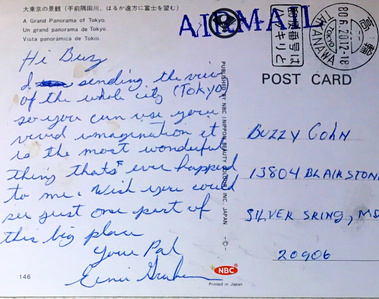 大東京の景観（手前隅田川、はるか遠方に富士を望む）
A Grand Panorama of Tokyo.
Un grand panorama de Tokyo.
Vista panorámica de Tokio.
AIRMAIL
POST CARD
Hi Buzy
I sending the view
of the whole city (Tokyo)
so you can use your
vivid imagination it
is the most wonderful
thing thats ever happened
to me. Wish you could
see just one part of
this big place
Your Pal
Buzzy Cohn
13804 BLAIRSTONE
SILVER SRING, MD
20906
PUBLISHED BY NBC INC. JAPAN
TAKANAWA
TOKYO
80.6.20.12-18
番号は
ハッキリと
146
NBC
Printed in Japan